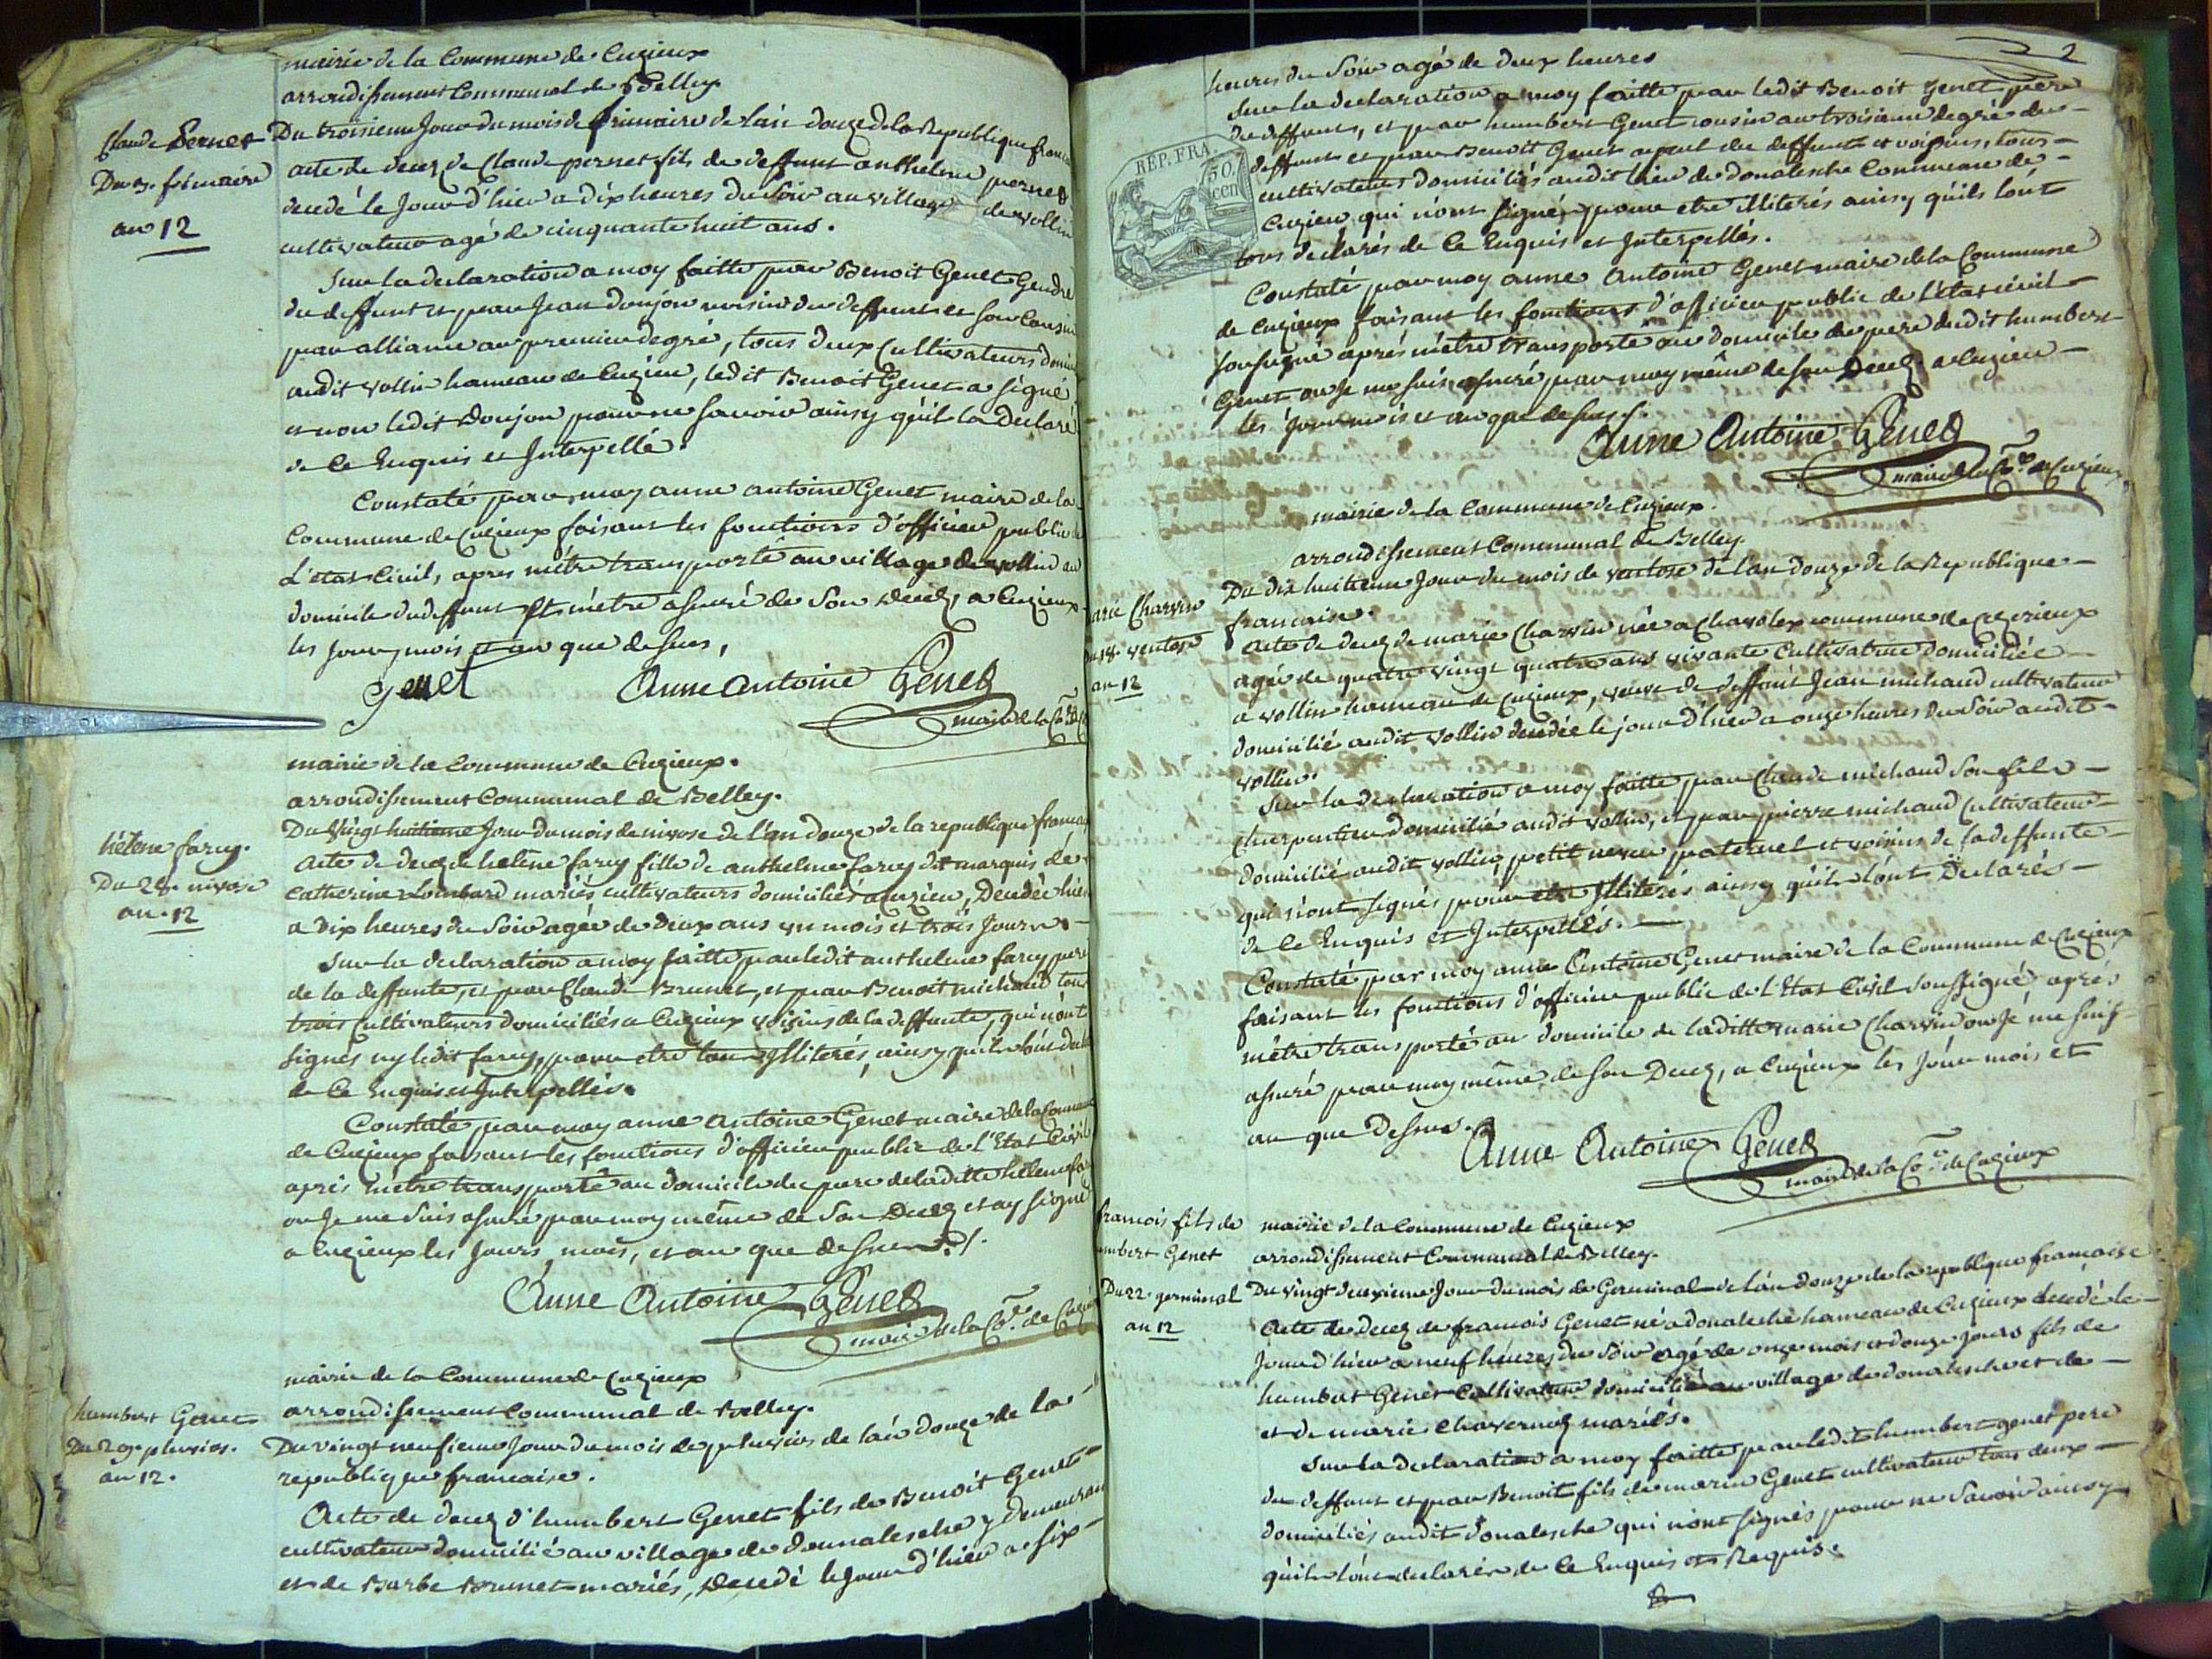 mairie de la Commune de Cuzieux
arrondissement Communal de Belley
Claude Pernet
Du 3. frimaire
an 12
Du troisieme Jour du mois de frimaire de l'an douze de la Republique
acte de decez de Claude pernet fils de deffunt anthelme pernet
decedé le Jour d'hier a dix heures du soir au village de vollin
cultivateur agé de cinquante huit ans.
Sur la declaration a moy faitte par Benoit Genet Gendre
du deffunt et par Jean donjon voisin du deffunt et son Cousin
par alliance au premier degré, tous deux Cultivateurs
audit vollin hameau de Cuzieu, ledit Benoit Genet a signé
et non ledit Donjon pour ne savoir ainsy qu'il la declaré
de Ce Enquis et Interpellé.
Constaté par moy anne antoine Genet maire de la
Commune de Cuzieux faisant les fonctions d'officier public de
L'etat Civil, apres m'être transporté au village de vollin au
domicile du deffunt Et m'etre assuré de Son Decez, a Cuzieux
les Jour, mois et an que dessus,
genet Anne Antoine Genet
maire de la Co.ne
mairie de la Commune de Cuzieux.
arrondissement Communal de Belley.
hélène farcy.
Du 28. nivose
an. 12
Du Vingt huitieme Jour du mois de nivose de l'an douze de la republique
Acte de decez de helene farcy fille de anthelme farcy dit marquis de
Catherine Lombard mariés cultivateurs domiciliés a Cuzieu, Decedée hier
a dix heures du Soir agée de deux ans un mois et trois Jours. -
Sur la declaration a moy faitte par ledit anthelme farcy pere
de la deffunte, et par Claude Brunet, et par Benoit michaud tous
trois Cultivateurs domiciliés a Cuzieux voisins de la deffunte, qui n'ont
signés ny ledit farcy, pour etre tous Illiterés, ainsy qu'ils l'ont
de Ce Enquis et Interpellés.
Constaté, par moy anne antoine Genet maire de la Commune
de Cuzieux faisant les fonctions d'officier public de l'Etat Civil
aprés m'etre transporté au domicile du pere de laditte helene
ou Je me Suis assuré par moy même de Son Decez et ay signé
a Cuzieux les Jours, mois, et an que dessus ./.
Anne Antoine Genet
maire de la Co.ne de
mairie de la Commune de Cuzieux
arrondissement Communal de Belley.
humbert Genet
Du 29. pluvios.
an 12.
Du vingt neufieme Jour du mois de pluvios de l'an douze de la
republique francaise.
Acte de decez d'humbert Genet fils de Benoit Genet
cultivateur domicilié au village de donnalesche y demeurant
et de Barbe Brunet mariés, Decedé le Jour d'hier a six
2
heures du Soir agé de deux heures
Sur la declaration a moy faitte par ledit Benoit Genet pere
du deffunt, et par humbert Genet cousin au troisieme degré du
deffunt et par Benoit Genet ayeul du deffunt et voisins, tous
cultivateurs domiciliés audit lieu de donalesche Commune de
Cuzieu, qui n'ont signés pour etre illiterés ainsy qu'ils l'ont
tous declarés de Ce Enquis et Interpellés.
REP. FRA.
50
cen
Constaté par moy anne Antoine Genet maire de la Commune
de Cuzieux faisant les fonctions d'officier public de l'etat civil
soussigné aprés m'être transporté au domicile du pere dudit humbert
Genet ou Je me suis assuré par moy même de son Decez. a Cuzieu
les Jour mois et an que dessus /.
Anne Antoine Genet
maire de la Co.ne de Cuzieux
mairie de la Commune de Cuzieux.
arrondissement Communal de Belley.
arie Charvin
du 18 ventose
an 12
Du dix huitieme Jour du mois de ventose de l'an douze de la Republique
francaise.
acte de decez de marie Charvin née a Chavolex commune de Ceyzerieux
agée de quatre vingt quatre ans vivante Cultivatrice domiciliée
a vollin hameau de Cuzieux, veuve de deffunt Jean michaud cultivateur
domicilié audit vollin decedée le jour d'hier a onze heures du soir audit
vollin.
Sur la declaration a moy faitte par Claude michaud Son fils
Charpentier domicilié audit vollin, et par pierre michaud Cultivateur
domicilié audit vollin, petit neveu paternel et voisins de la deffunte
qui n'ont signés pour etre Illiterés ainsy qu'ils l'ont Declarés
de Ce Enquis et Interpellés.
Constaté par moy anne Antoine Genet maire de la Commune de Cuzieux
faisant les fonctions d'officier public de l'Etat Civil soussigné aprés
m'être transporté au domicile de laditte marie Charvin ou Je me suis
assuré par moy même de son Decez, a Cuzieux les Jour mois et
an que Dessus.
Anne Antoine Genet
maire de la Co.ne de Cuzieux
francois fils de
umbert Genet
Du 22 germinal
an 12
mairie de la Commune de Cuzieux
arrondissement Communal de Belley.
Du vingt deuxieme Jour du mois de Germinal de l'an douze de la republique francaise
Acte de Decez de francois Genet né a donalesche hameau de Cuzieux decedé le
Jour d'hier a neuf heures du soir agé de onze mois et douze Jours fils de
humbert Genet Cultivateur domicilié au village de donalesche et de
et de marie Chavernoz mariés.
Sur la declaration a moy faitte par ledit humbert genet pere
du deffunt et par Benoit fils de marin Genet cultivateur tous deux
domiciliés audit donalesche qui n'ont signés pour ne savoir ainsy
qu'ils l'ont declarés de Ce Enquis et Requis.